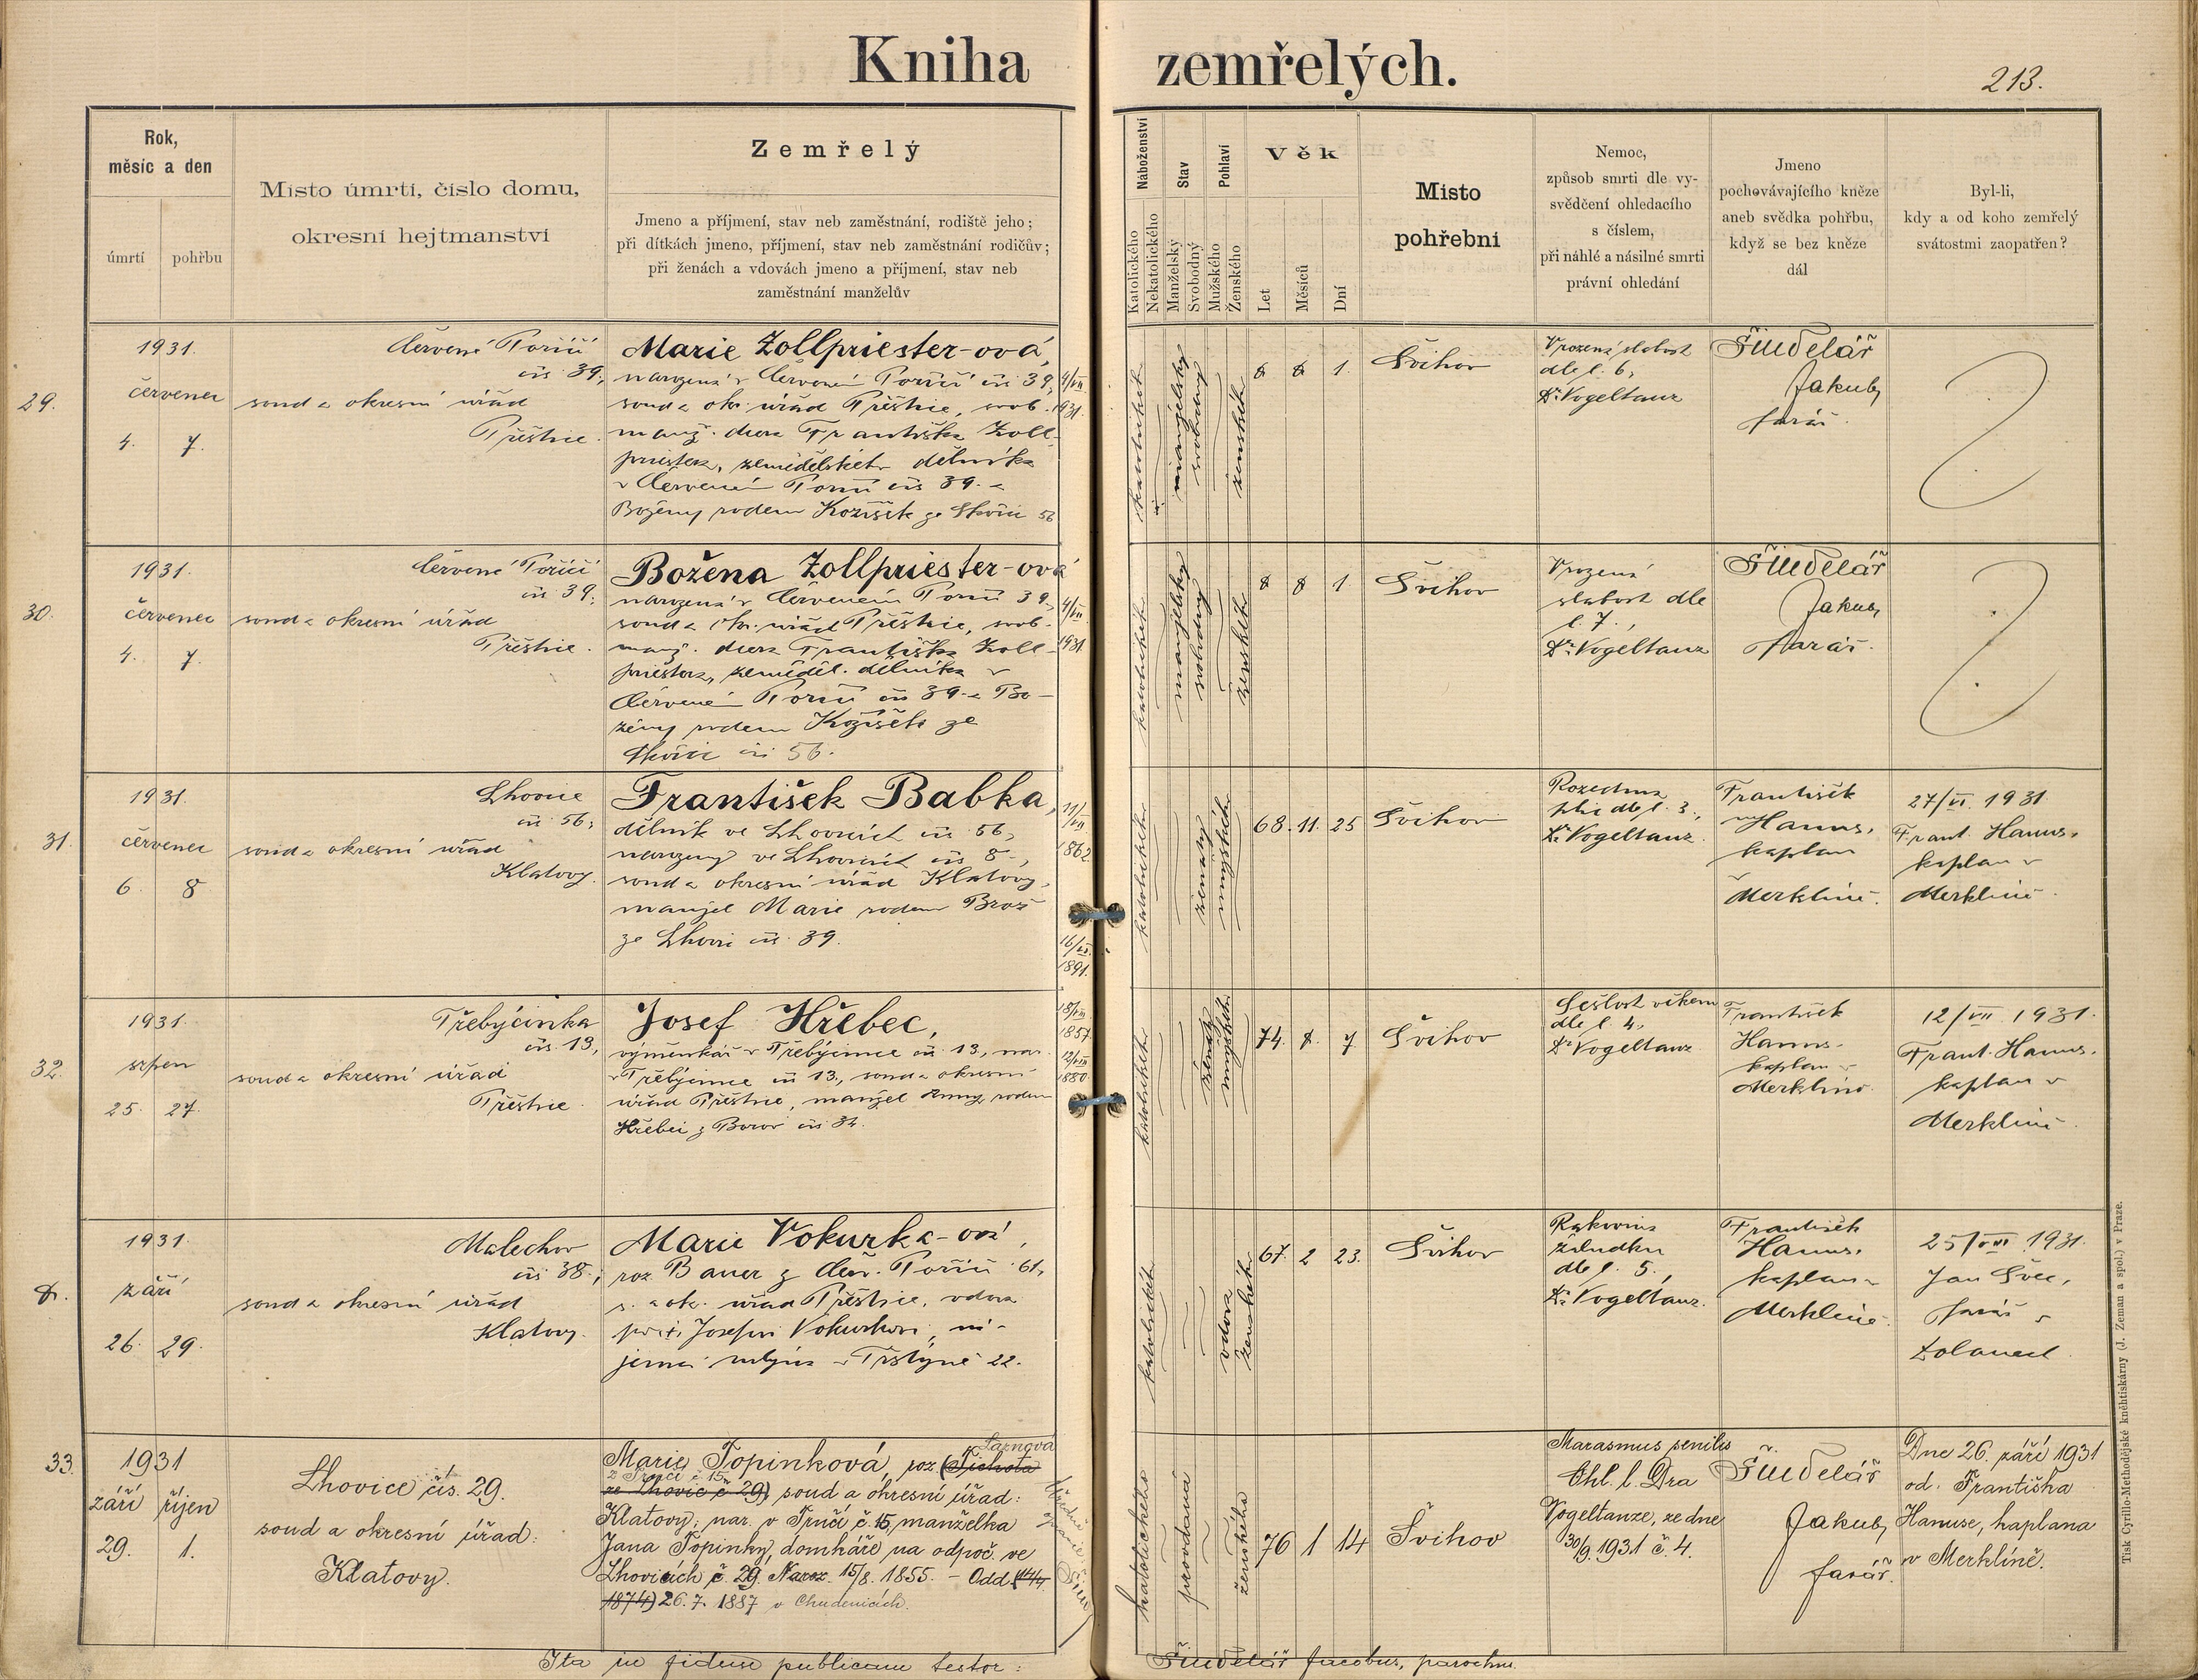 Kniha zemřelých.
213.
Rok,
měsíc a den
úmrtí
pohřbu
Místo úmrtí, číslo domu,
okresní hejtmanství
Zemřelý
Jmeno a příjmení, stav neb zaměstnání, rodiště jeho;
při dítkách jmeno, příjmení, stav neb zaměstnání rodičův;
při ženách a vdovách jmeno a příjmení, stav neb
zaměstnání manželův
Náboženství
Katolického
Nekatolického
Stav
Manželský
Svobodný
Pohlaví
Mužského
Ženského
Věk
Let
Měsíců
Dní
Místo
pohřební
Nemoc,
způsob smrti dle vy-
svědčení ohledacího
s číslem,
při náhlé a násilné smrti
právní ohledání
Jmeno
pochovávajícího kněze
aneb svědka pohřbu,
když se bez kněze
dál
Byl-li,
kdy a od koho zemřelý
svátostmi zaopatřen?
29.
1931.
červenec
4. 7.
Červené Poříčí
čís 39,
soud a okresní úřad
Přeštice.
Marie Zollpriester-ová,
narozená v Červeném Poříčí čís 39,
soud a okr. úřad Přeštice,
manž. dcera Františka Zoll-
priestera, zemědělského dělníka
v Červeném Poříčí čís 39. a
Boženy rodem Kozíšek ze 56
4/VII
1931.
katolického
manželský
svobodný
ženského
1.
Švihov
Vrozená slabost
dle č. 6,
Dr. Vogeltanz
Šindelář
Jakub,
farář.
30.
1931.
červenec
4. 7.
Červené Poříčí
čís 39,
soud a okresní úřad
Přeštice.
Božena Zollpriester-ová
narozená v Červeném Poříčí 39,
soud a okr. úřad Přeštice,
manž. dcera Františka Zoll-
priestera, zeměděl. dělníka v
Červeném Poříčí čís 39 a Bo-
ženy rodem Kozíšek ze
čís 56.
4/VII
1931.
katolického
manželský
svobodný
ženského
1.
Švihov
Vrozená
slabost dle
č. 7.,
Dr. Vogeltanz
Šindelář
Jakub,
farář.
31.
1931.
červenec
6. 8
Lhovice
čís 56,
soud a okresní úřad
Klatovy.
František Babka,
dělník ve Lhovicích čís 56,
narozený ve Lhovicích čís 8,
soud a okresní úřad Klatovy,
manžel Marie rodem Brož
ze Lhovic čís 39.
11/VII
1862
16/VI.
1891.
katolického
ženatý
mužského
68. 11. 25
Švihov
Rozedma
plic dle č. 3.,
Dr. Vogeltanz.
František
Hanus,
kaplan
v Merklíně.
27/VI 1931
Frant. Hanus,
kaplan v
Merklíně.
32.
1931.
srpen
25. 27.
Třebýcinka
čís. 13,
soud a okresní úřad
Přeštice
Josef Hřebec,
výměnkář v Třebýcince čís 13, nar.
v Třebýcince čís 13., soud a okresní
úřad Přeštice, manžel Anny, rodem
Hřebec z Borov čís 34.
18/VIII
1857.
12/VIII
1880
katolického
ženatý
mužského
74. 7
Švihov
Sešlost věkem
dle č. 4,
Dr. Vogeltanz
František
Hanus,
kaplan v
Merklíně.
12/VII 1931.
Frant. Hanus,
kaplan v
Merklíně.
1931.
září
26. 29.
Malechov
čís 38.,
soud a okresní úřad
Klatovy.
Marie Vokurka-ová,
roz. Bauer z Červ. Poříčí 61,
s. a ok. úřad Přeštice, vdova
po † Josefu Vokurkovi, ná-
jemci mlýna v Trstýně 22.
katolického
vdova
ženského
67. 2 23.
Švihov
Rakovina
žaludku
dle č. 5.,
Dr. Vogeltanz.
František
Hanus,
kaplan v
Merklíně.
25/VIII 1931.
Jan Švec,
farář v
Dolanech
33.
1931
září říjen
29. 1.
Lhovice čís. 29.
soud a okresní úřad:
Klatovy.
Marie Topinková, roz. (Tichota
ze Lhovic č 29) soud a okresní úřad:
Klatovy; nar. v Trnčí č. 15, manželka
Jana Topinky, domkáře na odpoč. ve
Lhovicích č. 29. Naroz. 15/8. 1855. – Odd.
1874) 26. 7. 1887 v Chudenicích.
katolického
provdaná
ženského
76 1 14
Švihov
Marasmus senilis
Ohl. l. Dra
Vogeltanze, ze dne
30/9. 1931 č. 4.
Šindelář
Jakub,
farář.
Dne 26. září 1931
od Františka
Hanuse, kaplana
v Merklíně.
Ita in fidem publicam testor:
Šindelář Jacobus, parochus.
Tisk Cyrillo-Methodějské knihtiskárny (J. Zeman a spol.) v Praze.